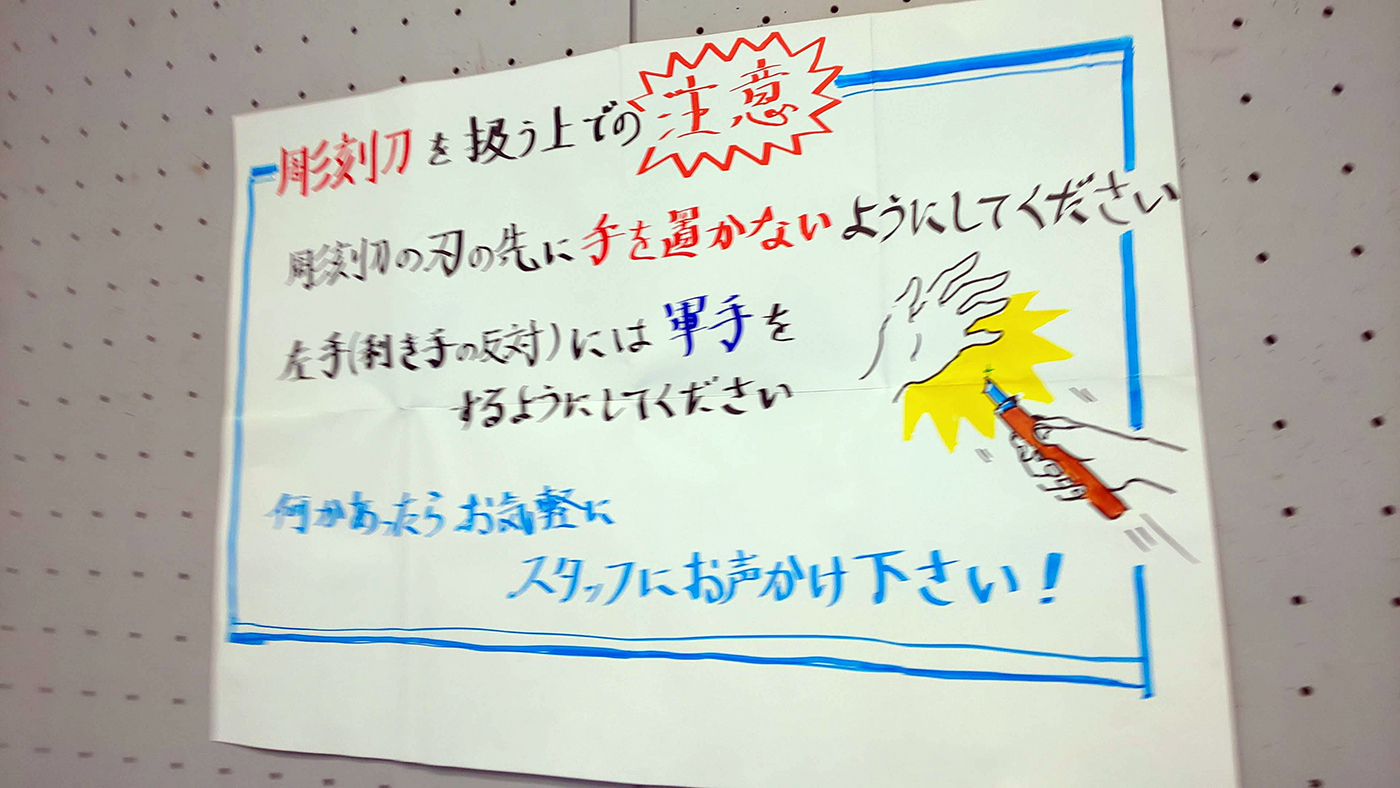 彫刻刀を扱う上での注意
彫刻刀の刃の先に手を置かないようにしてください
左手(利き手の反対)には軍手を
するようにしてください
何かあったらお気軽に
スタッフにお声かけ下さい!